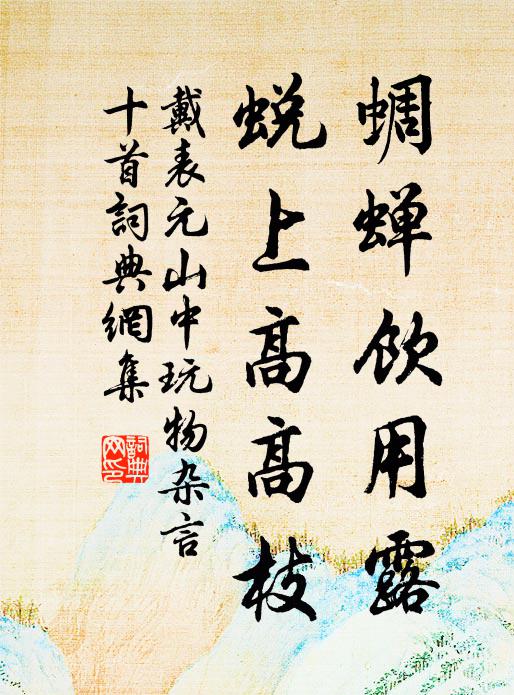 蜩蝉饮用露
蜕上高高枝
戴表元山中玩物杂言
十首詞典網集
詞典
网印